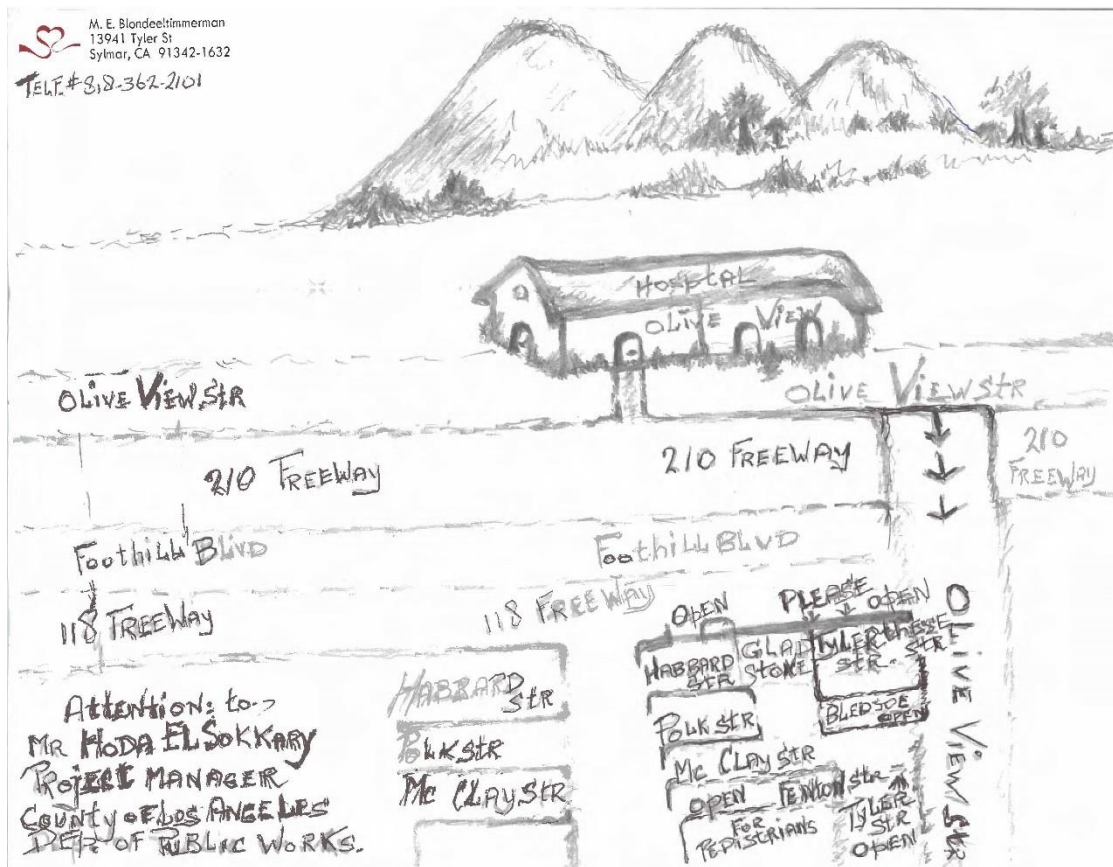 M. E. Blondeeltimmerman
13941 Tyler St
Sylmar, CA 91342-1632
TELF.#818-362-2101
HospTAL
OLIVE VIEW
OLIVE VIEW STR
OLIVE VIEW STR
210 FREEWAY
210 FREEWAY
210
FREEWAY
Foothill BLVD
FoothILL BLVD
118 FREEWAY
118 FREEWAY
OPEN
PLEASE
OPEN
HABBARD
STR
GLAD
STONE
TYLER
STR
THESE
STR
BLEDSOE
OPEN
POLK STR
Mc CLAY STR
OPEN
FOR
PEDISTRIANS
FENTON STR
TYLER
STR
OPEN
OLIVE VIEW STR
HABBARD
STR
POLK STR
Mc CLAY STR
Attention: to->
MR HODA EL SOKKARY
PROJECT MANAGER
COUNTY OF LOS ANGELES
DEP. OF PUBLIC WORKS.